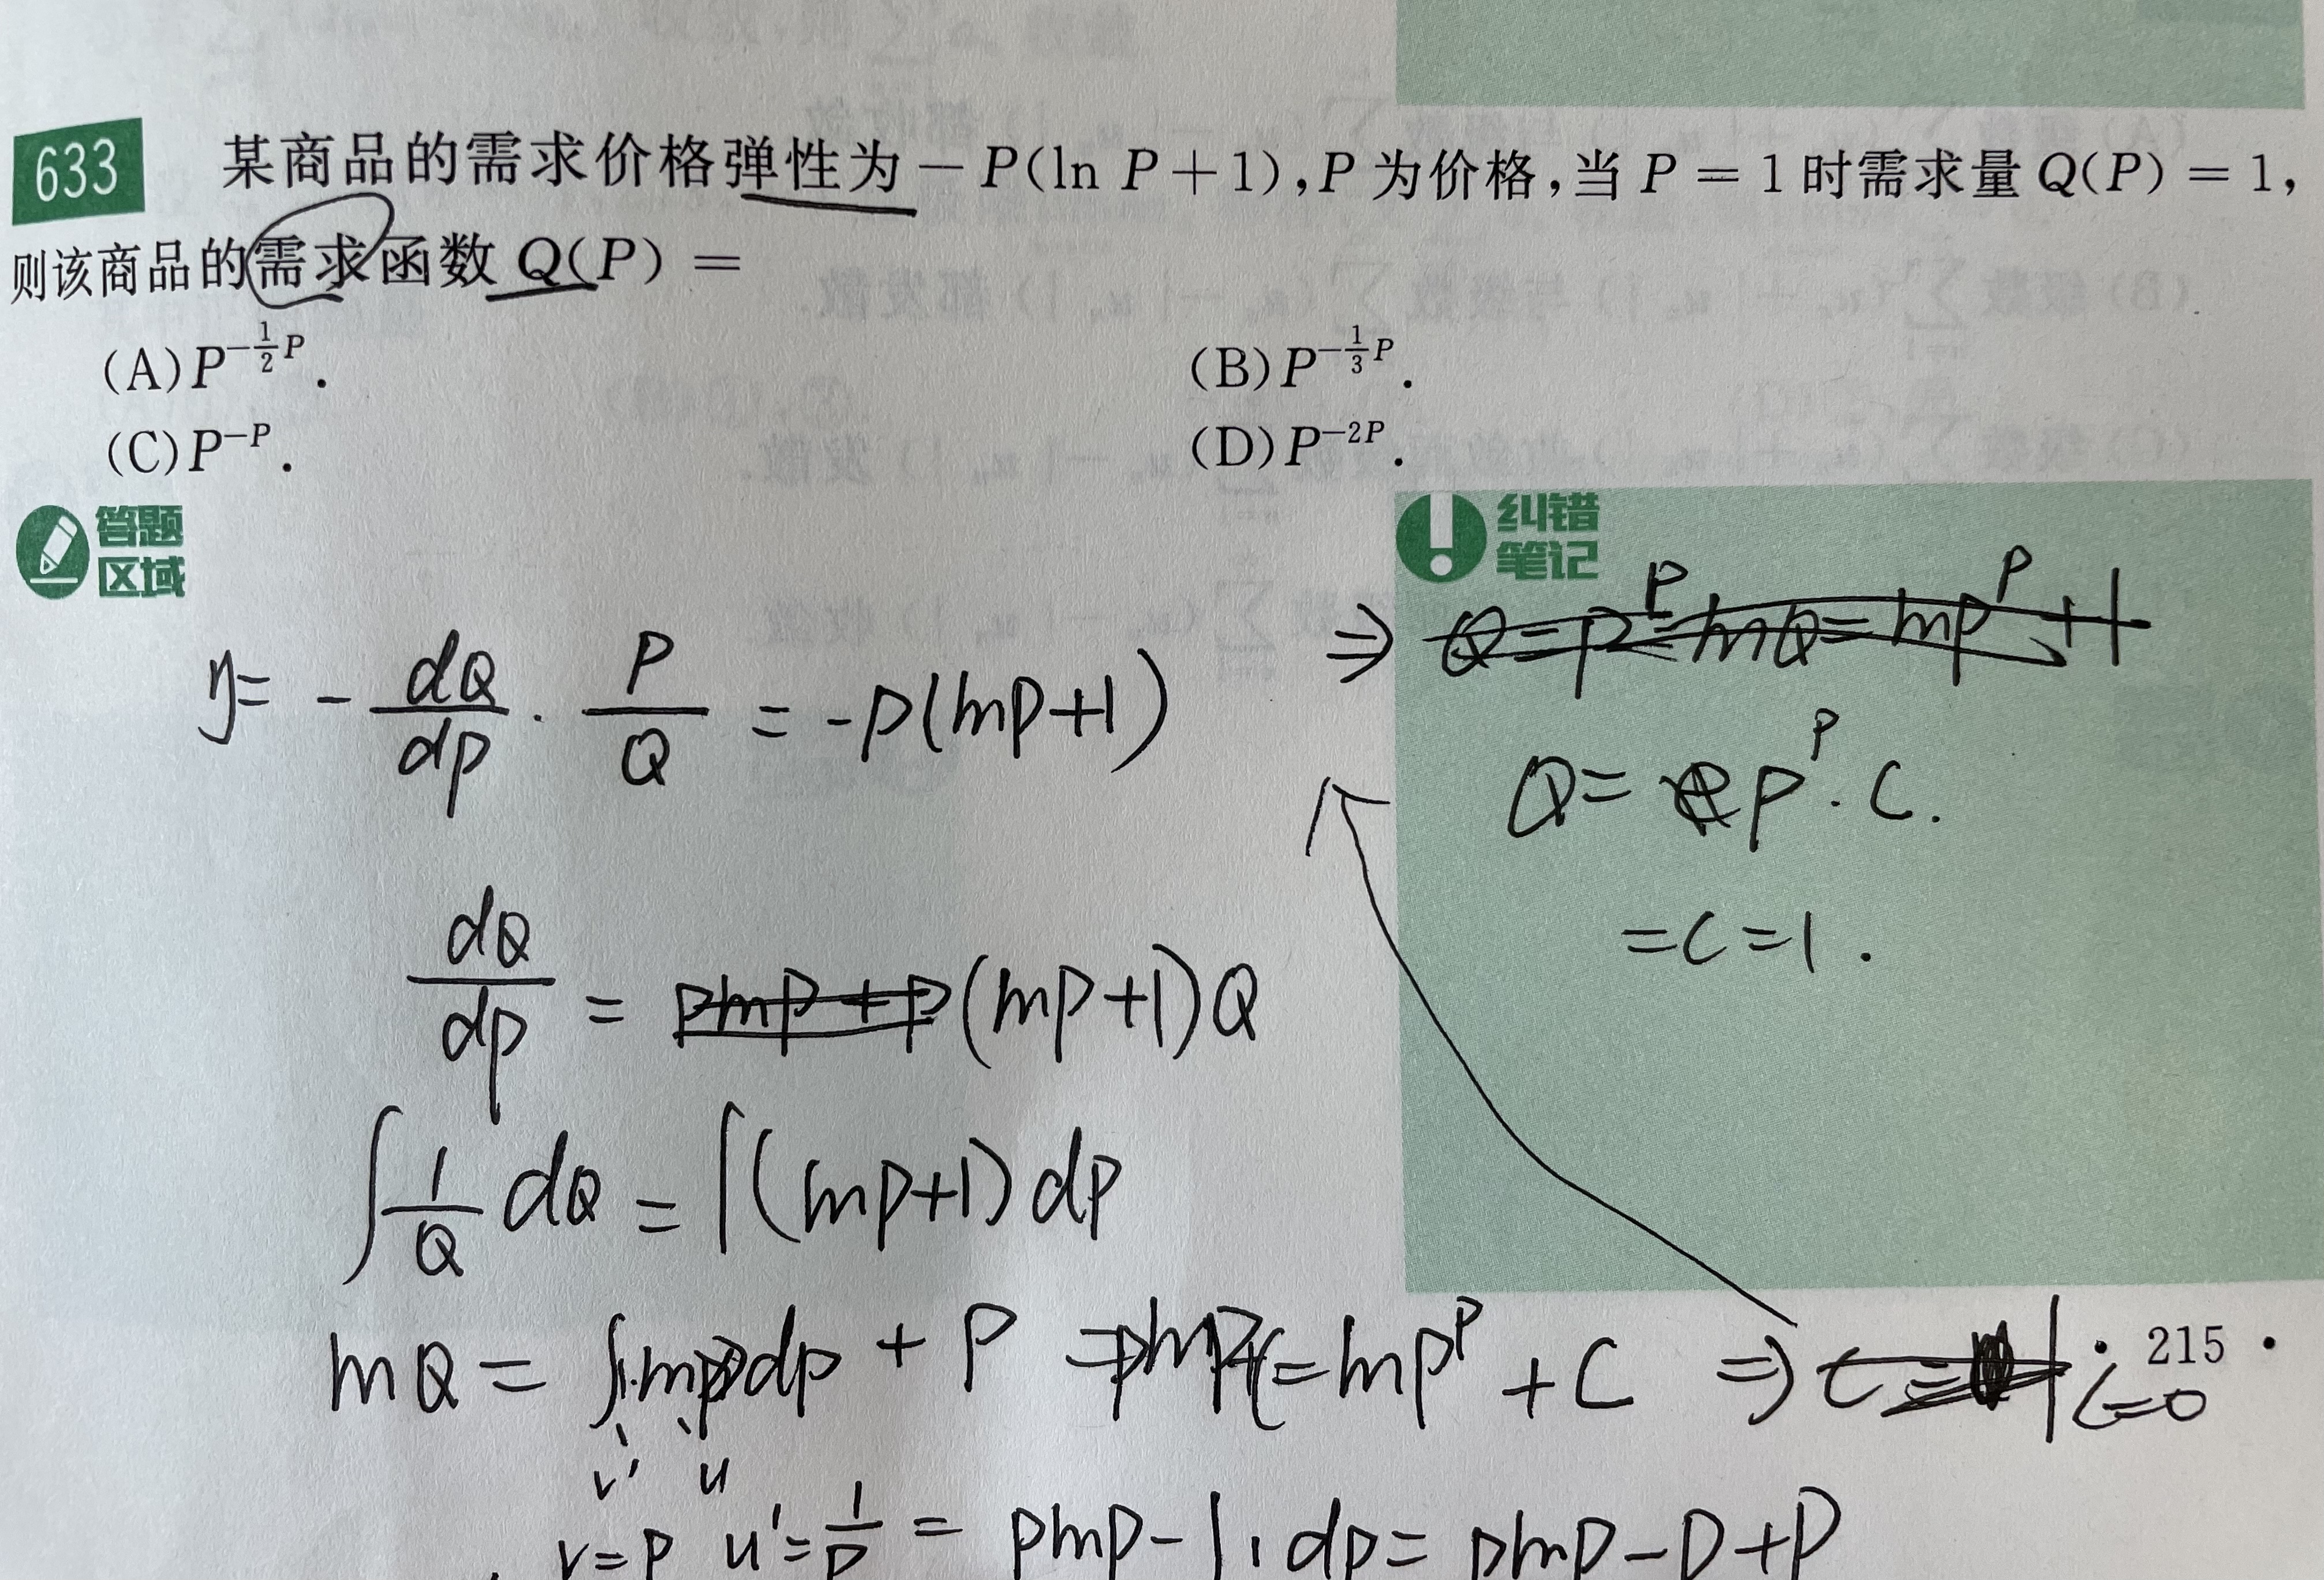 633 某商品的需求价格弹性为 $-P(\ln P+1)$,P 为价格,当 $P=1$ 时需求量 $Q(P)=1$,
则该商品的需求函数 $Q(P)=$
(A) $P^{-\frac{1}{2}P}$. (B) $P^{-\frac{1}{3}P}$.
(C) $P^{-P}$. (D) $P^{-2P}$.
答题
区域
纠错
笔记
$\eta = -\frac{dQ}{dp} \cdot \frac{P}{Q} = -p(\ln p+1)$
$\frac{dQ}{dp} = (\ln p+1)Q$
$\int \frac{1}{Q} dQ = \int (\ln p+1) dp$
$\ln Q = \int 1 \cdot \ln p dp + P$ $= \ln p^P + C$ ⇒ $C=0$
v' u
$v=p$ $u'=\frac{1}{p}$ $= p\ln p - \int 1 dp = p\ln p - p + p$
⇒
$Q = p^P \cdot C.$
$= C = 1.$
· 215 ·